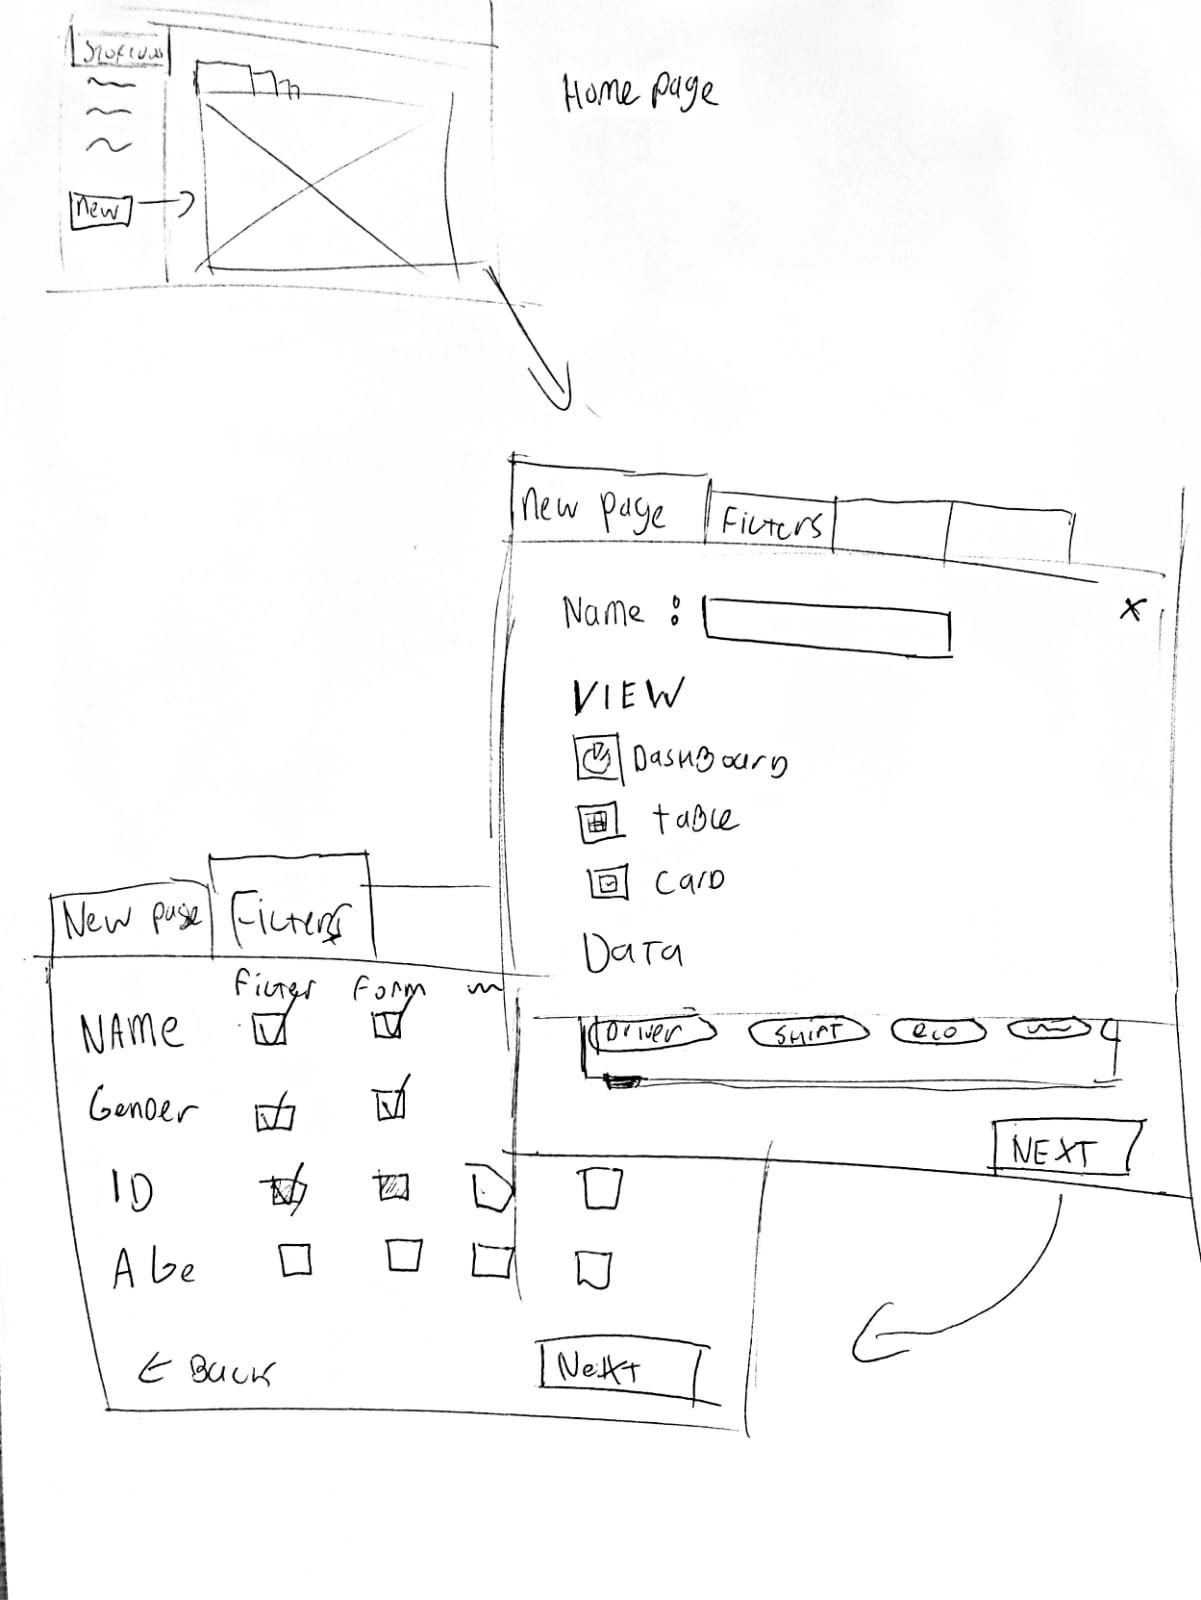 Home page
New
New page
Filters
Name :
VIEW
DashBoard
table
card
Data
Driver
SHIFT
eco
NEXT
New page
Filters
Filter Form
NAMe
Gender
ID
AGe
← Back
NeXt